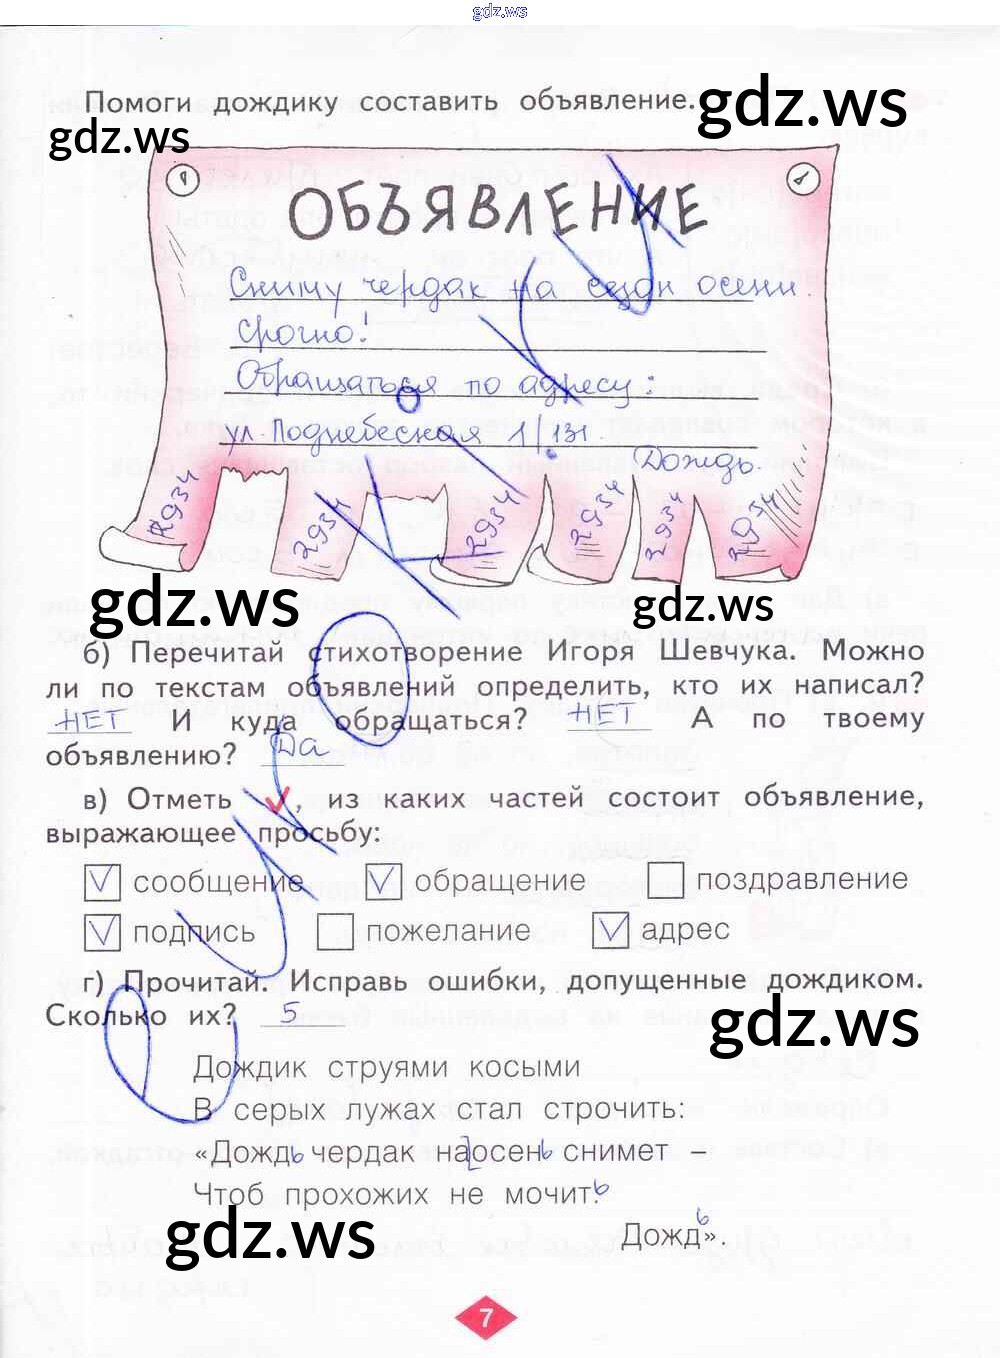 gdz.ws
Помоги дождику составить объявление.
gdz.ws
gdz.ws
ОБЪЯВЛЕНИЕ
Сниму чердак на сезон осени
срочно!
Обращаться по адресу:
ул. Поднебесная 1/131.
Дождь
2934 2934 2934 2934 2934 2934
gdz.ws
gdz.ws
б) Перечитай стихотворение Игоря Шевчука. Можно
ли по текстам объявлений определить, кто их написал?
НЕТ И куда обращаться? НЕТ А по твоему
объявлению? Да
в) Отметь ✓, из каких частей состоит объявление,
выражающее просьбу:
V сообщение V обращение поздравление
V подпись пожелание V адрес
г) Прочитай. Исправь ошибки, допущенные дождиком.
Сколько их? 5
gdz.ws
Дождик струями косыми
В серых лужах стал строчить:
«Дождь чердак на осень снимет –
Чтоб прохожих не мочить.
gdz.ws
Дождь».
7